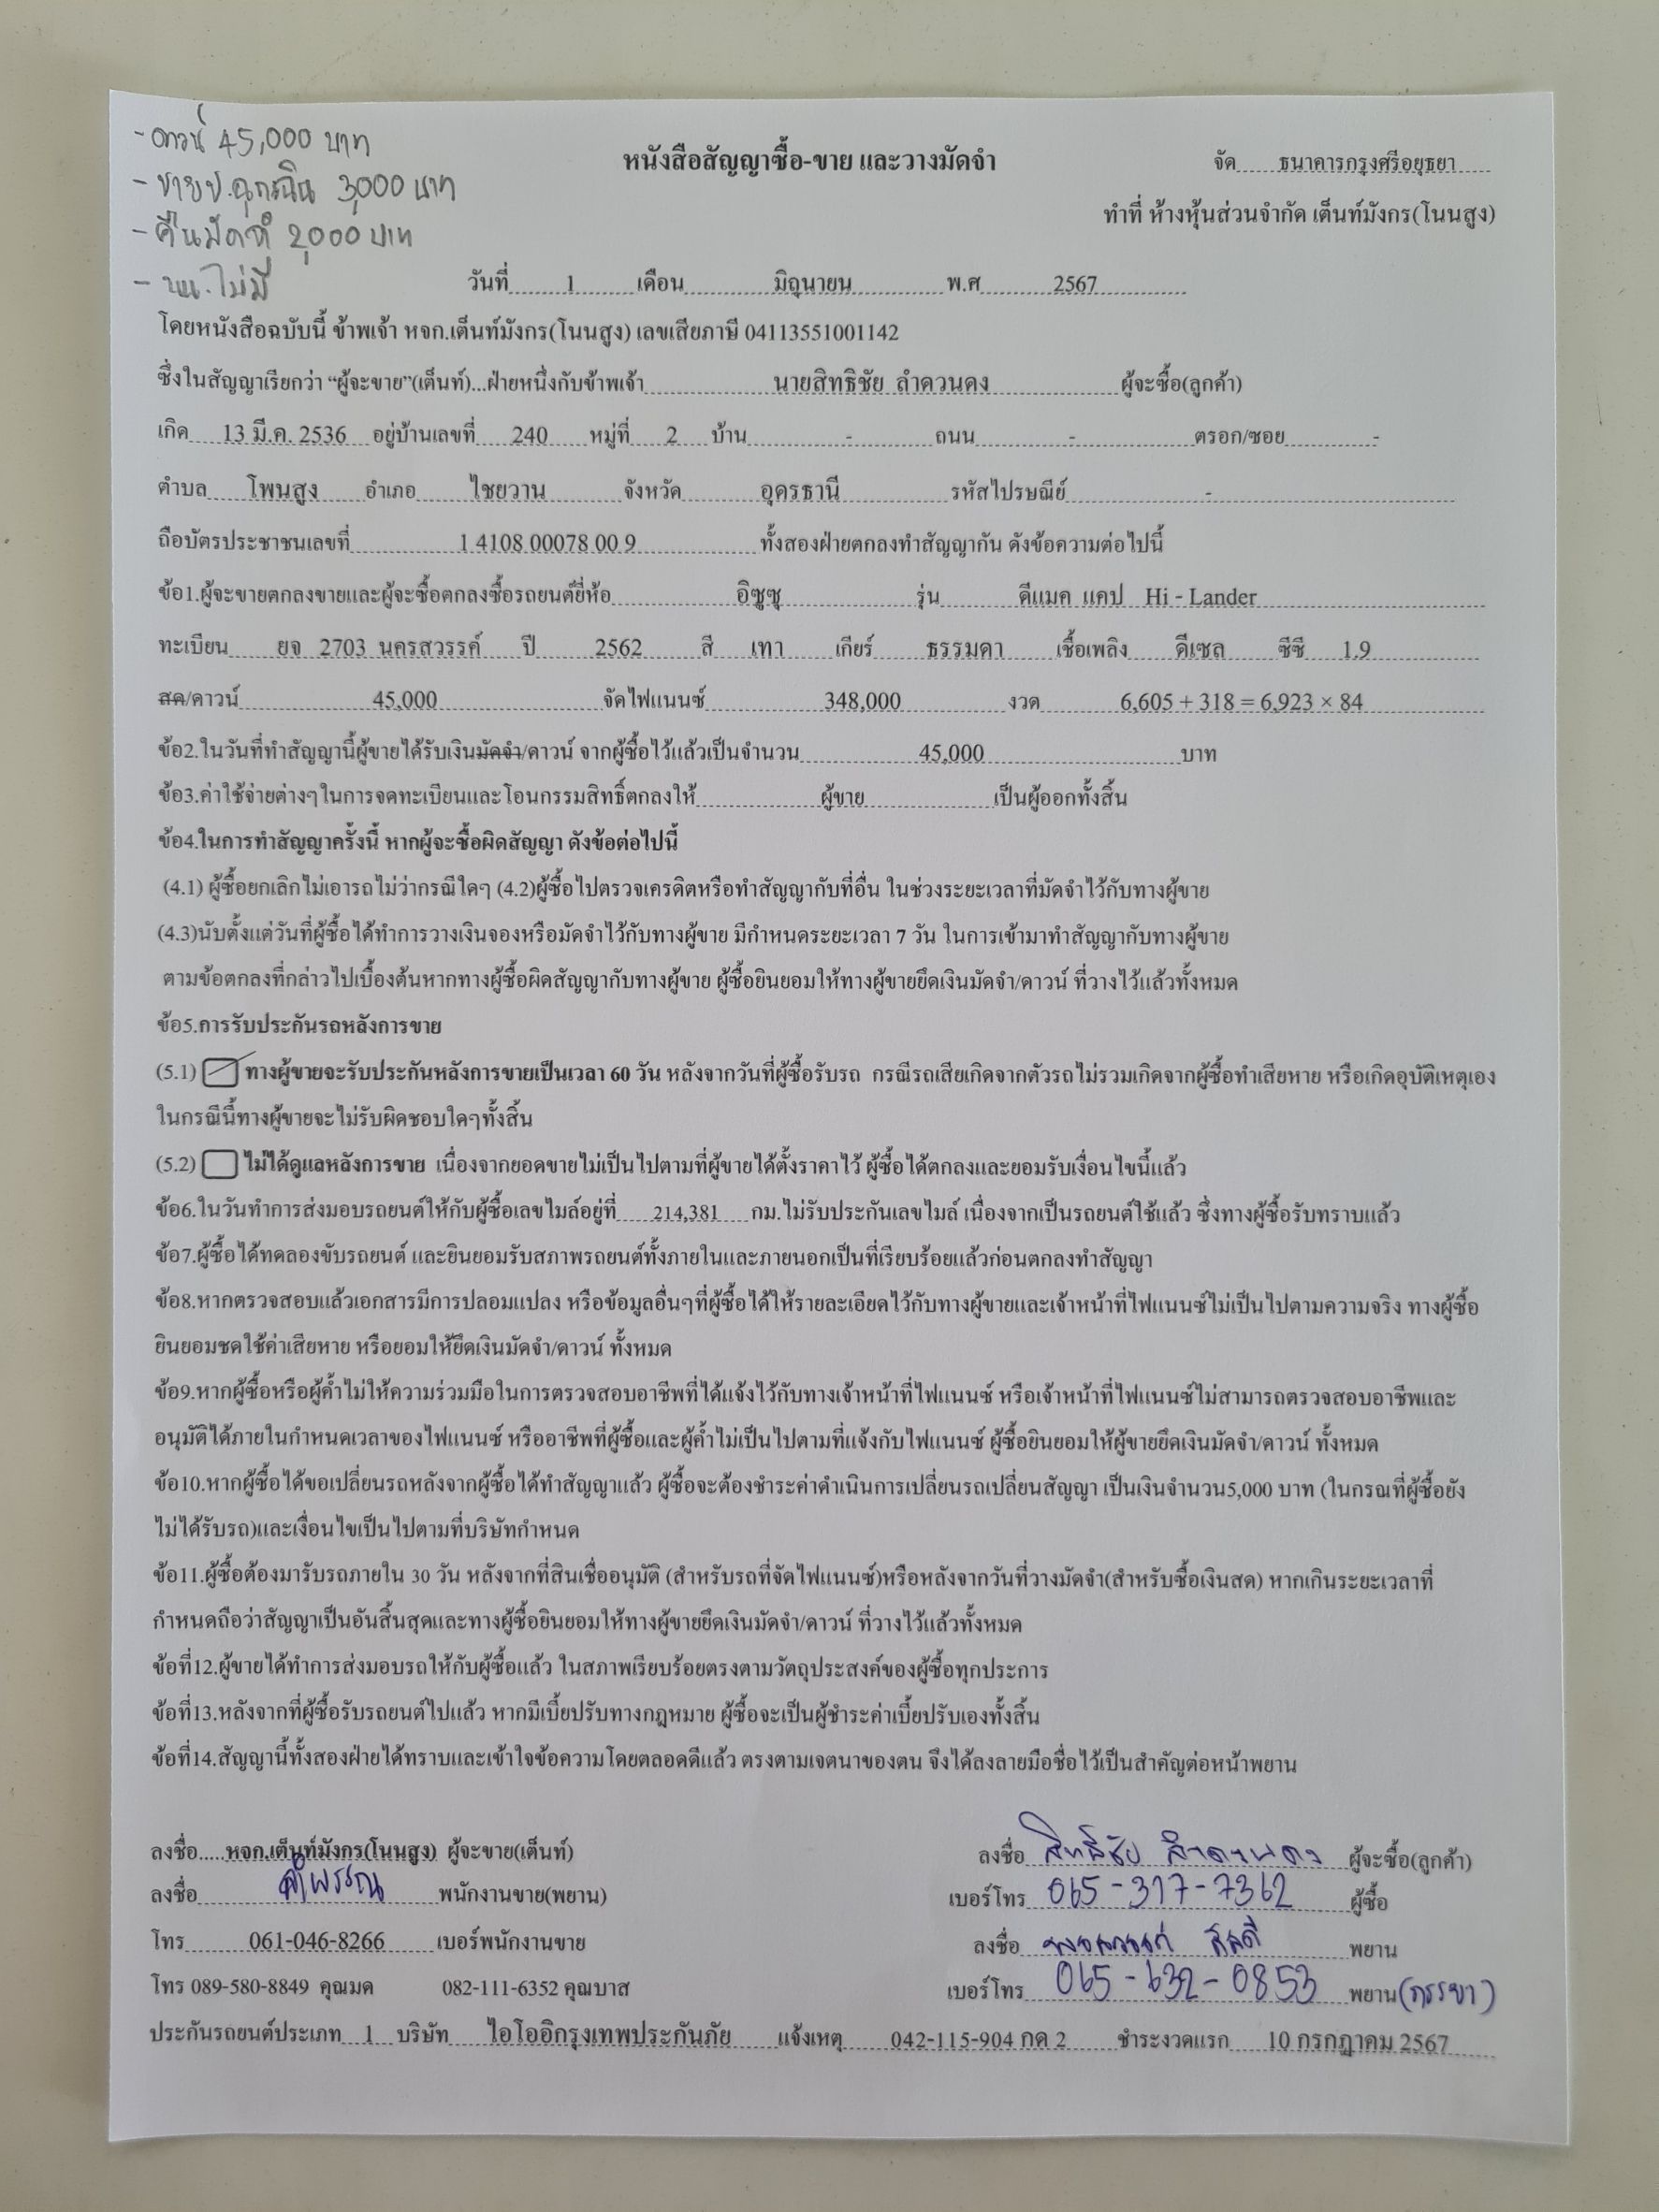 - ดาวน์ 45,000 บาท
- ขายป.ฉุกเฉิน 3,000 บาท
- คืนมัดจำ 2,000 บาท
- นน.ไม่มี
หนังสือสัญญาซื้อ-ขาย และวางมัดจำ
จัด ธนาคารกรุงศรีอยุธยา
ทำที่ ห้างหุ้นส่วนจำกัด เต็นท์มังกร(โนนสูง)
วันที่ 1 เดือน มิถุนายน พ.ศ 2567
โดยหนังสือฉบับนี้ ข้าพเจ้า หจก.เต็นท์มังกร(โนนสูง) เลขเสียภาษี 04113551001142
ซึ่งในสัญญาเรียกว่า “ผู้จะขาย”(เต็นท์)...ฝ่ายหนึ่งกับข้าพเจ้า นายสิทธิชัย ลำดวนดง ผู้จะซื้อ(ลูกค้า)
เกิด 13 มี.ค. 2536 อยู่บ้านเลขที่ 240 หมู่ที่ 2 บ้าน - ถนน - ตรอก/ซอย -
ตำบล โพนสูง อำเภอ ไชยวาน จังหวัด อุดรธานี รหัสไปรษณีย์ -
ถือบัตรประชาชนเลขที่ 1 4108 00078 00 9 ทั้งสองฝ่ายตกลงทำสัญญากัน ดังข้อความต่อไปนี้
ข้อ1.ผู้จะขายตกลงขายและผู้จะซื้อตกลงซื้อรถยนต์ยี่ห้อ อิซูซุ รุ่น ดีแมค แคป Hi - Lander
ทะเบียน ยจ 2703 นครสวรรค์ ปี 2562 สี เทา เกียร์ ธรรมดา เชื้อเพลิง ดีเซล ซีซี 1.9
สด/ดาวน์ 45,000 จัดไฟแนนซ์ 348,000 งวด 6,605 + 318 = 6,923 × 84
ข้อ2.ในวันที่ทำสัญญานี้ผู้ขายได้รับเงินมัดจำ/ดาวน์ จากผู้ซื้อไว้แล้วเป็นจำนวน 45,000 บาท
ข้อ3.ค่าใช้จ่ายต่างๆในการจดทะเบียนและโอนกรรมสิทธิ์ตกลงให้ ผู้ขาย เป็นผู้ออกทั้งสิ้น
ข้อ4.ในการทำสัญญาครั้งนี้ หากผู้จะซื้อผิดสัญญา ดังข้อต่อไปนี้
(4.1) ผู้ซื้อยกเลิกไม่เอารถไม่ว่ากรณีใดๆ (4.2)ผู้ซื้อไปตรวจเครดิตหรือทำสัญญากับที่อื่น ในช่วงระยะเวลาที่มัดจำไว้กับทางผู้ขาย
(4.3)นับตั้งแต่วันที่ผู้ซื้อได้ทำการวางเงินจองหรือมัดจำไว้กับทางผู้ขาย มีกำหนดระยะเวลา 7 วัน ในการเข้ามาทำสัญญากับทางผู้ขาย
ตามข้อตกลงที่กล่าวไปเบื้องต้นหากทางผู้ซื้อผิดสัญญากับทางผู้ขาย ผู้ซื้อยินยอมให้ทางผู้ขายยึดเงินมัดจำ/ดาวน์ ที่วางไว้แล้วทั้งหมด
ข้อ5.การรับประกันรถหลังการขาย
(5.1) ทางผู้ขายจะรับประกันหลังการขายเป็นเวลา 60 วัน หลังจากวันที่ผู้ซื้อรับรถ กรณีรถเสียเกิดจากตัวรถไม่รวมเกิดจากผู้ซื้อทำเสียหาย หรือเกิดอุบัติเหตุเอง
ในกรณีนี้ทางผู้ขายจะไม่รับผิดชอบใดๆทั้งสิ้น
(5.2) ไม่ได้ดูแลหลังการขาย เนื่องจากยอดขายไม่เป็นไปตามที่ผู้ขายได้ตั้งราคาไว้ ผู้ซื้อได้ตกลงและยอมรับเงื่อนไขนี้แล้ว
ข้อ6.ในวันทำการส่งมอบรถยนต์ให้กับผู้ซื้อเลขไมล์อยู่ที่ 214,381 กม.ไม่รับประกันเลขไมล์ เนื่องจากเป็นรถยนต์ใช้แล้ว ซึ่งทางผู้ซื้อรับทราบแล้ว
ข้อ7.ผู้ซื้อได้ทดลองขับรถยนต์ และยินยอมรับสภาพรถยนต์ทั้งภายในและภายนอกเป็นที่เรียบร้อยแล้วก่อนตกลงทำสัญญา
ข้อ8.หากตรวจสอบแล้วเอกสารมีการปลอมแปลง หรือข้อมูลอื่นๆที่ผู้ซื้อได้ให้รายละเอียดไว้กับทางผู้ขายและเจ้าหน้าที่ไฟแนนซ์ไม่เป็นไปตามความจริง ทางผู้ซื้อ
ยินยอมชดใช้ค่าเสียหาย หรือยอมให้ยึดเงินมัดจำ/ดาวน์ ทั้งหมด
ข้อ9.หากผู้ซื้อหรือผู้ค้ำไม่ให้ความร่วมมือในการตรวจสอบอาชีพที่ได้แจ้งไว้กับทางเจ้าหน้าที่ไฟแนนซ์ หรือเจ้าหน้าที่ไฟแนนซ์ไม่สามารถตรวจสอบอาชีพและ
อนุมัติได้ภายในกำหนดเวลาของไฟแนนซ์ หรืออาชีพที่ผู้ซื้อและผู้ค้ำไม่เป็นไปตามที่แจ้งกับไฟแนนซ์ ผู้ซื้อยินยอมให้ผู้ขายยึดเงินมัดจำ/ดาวน์ ทั้งหมด
ข้อ10.หากผู้ซื้อได้ขอเปลี่ยนรถหลังจากผู้ซื้อได้ทำสัญญาแล้ว ผู้ซื้อจะต้องชำระค่าดำเนินการเปลี่ยนรถเปลี่ยนสัญญา เป็นเงินจำนวน5,000 บาท (ในกรณที่ผู้ซื้อยัง
ไม่ได้รับรถ)และเงื่อนไขเป็นไปตามที่บริษัทกำหนด
ข้อ11.ผู้ซื้อต้องมารับรถภายใน 30 วัน หลังจากที่สินเชื่ออนุมัติ (สำหรับรถที่จัดไฟแนนซ์)หรือหลังจากวันที่วางมัดจำ(สำหรับซื้อเงินสด) หากเกินระยะเวลาที่
กำหนดถือว่าสัญญาเป็นอันสิ้นสุดและทางผู้ซื้อยินยอมให้ทางผู้ขายยึดเงินมัดจำ/ดาวน์ ที่วางไว้แล้วทั้งหมด
ข้อที่12.ผู้ขายได้ทำการส่งมอบรถให้กับผู้ซื้อแล้ว ในสภาพเรียบร้อยตรงตามวัตถุประสงค์ของผู้ซื้อทุกประการ
ข้อที่13.หลังจากที่ผู้ซื้อรับรถยนต์ไปแล้ว หากมีเบี้ยปรับทางกฎหมาย ผู้ซื้อจะเป็นผู้ชำระค่าเบี้ยปรับเองทั้งสิ้น
ข้อที่14.สัญญานี้ทั้งสองฝ่ายได้ทราบและเข้าใจข้อความโดยตลอดดีแล้ว ตรงตามเจตนาของตน จึงได้ลงลายมือชื่อไว้เป็นสำคัญต่อหน้าพยาน
ลงชื่อ.....หจก.เต็นท์มังกร(โนนสูง) ผู้จะขาย(เต็นท์) ลงชื่อ สิทธิชัย ลำดวนดง ผู้จะซื้อ(ลูกค้า)
ลงชื่อ คำพรรณ พนักงานขาย(พยาน) เบอร์โทร 065-317-7362 ผู้ซื้อ
โทร 061-046-8266 เบอร์พนักงานขาย ลงชื่อ พยาน
โทร 089-580-8849 คุณมด 082-111-6352 คุณบาส เบอร์โทร 065-632-0853 พยาน(ภรรยา)
ประกันรถยนต์ประเภท 1 บริษัท ไอโออิกรุงเทพประกันภัย แจ้งเหตุ 042-115-904 กด 2 ชำระงวดแรก 10 กรกฎาคม 2567